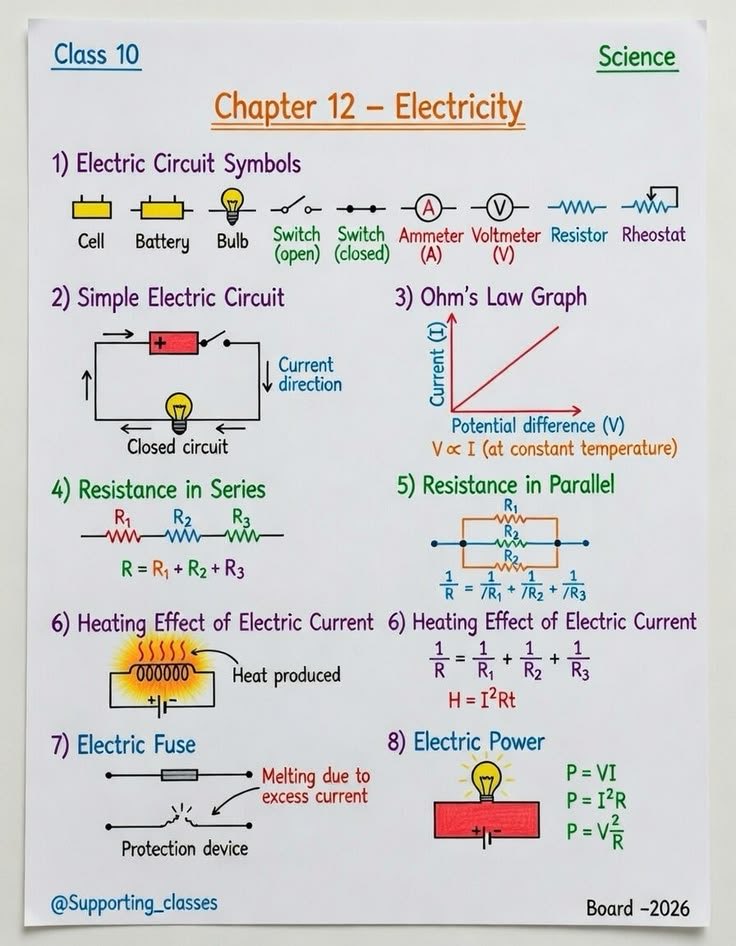 Class 10
Science
Chapter 12 – Electricity
1) Electric Circuit Symbols
A
V
Cell
Battery
Bulb
Switch
(open)
Switch
(closed)
Ammeter
(A)
Voltmeter
(V)
Resistor
Rheostat
2) Simple Electric Circuit
+
Current
direction
Closed circuit
3) Ohm's Law Graph
Current (I)
Potential difference (V)
V ∝ I (at constant temperature)
4) Resistance in Series
R₁ R₂ R₃
R = R₁ + R₂ + R₃
5) Resistance in Parallel
R₁
R₂
R₂
1/R = 1//R₁ + 1//R₂ + 1//R₃
6) Heating Effect of Electric Current
Heat produced
+ −
6) Heating Effect of Electric Current
1/R = 1/R₁ + 1/R₂ + 1/R₃
H = I²Rt
7) Electric Fuse
Melting due to
excess current
Protection device
8) Electric Power
+ −
P = VI
P = I²R
P = V²/R
@Supporting_classes
Board –2026